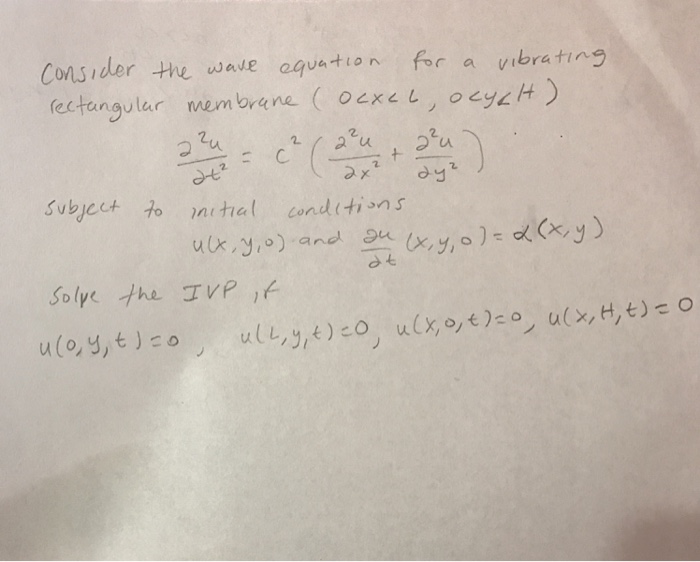 Consider the wave equation for a vibrating
rectangular membrane ( 0<x<L, 0<y<H )
∂²u/∂t² = c² ( ∂²u/∂x² + ∂²u/∂y² )
subject to initial conditions
u(x,y,0) and ∂u/∂t (x,y,0) = α(x,y)
Solve the IVP if
u(0,y,t)=0, u(L,y,t)=0, u(x,0,t)=0, u(x,H,t)=0